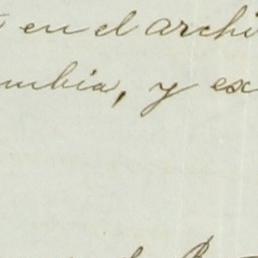 en el archi
mbia, y ex